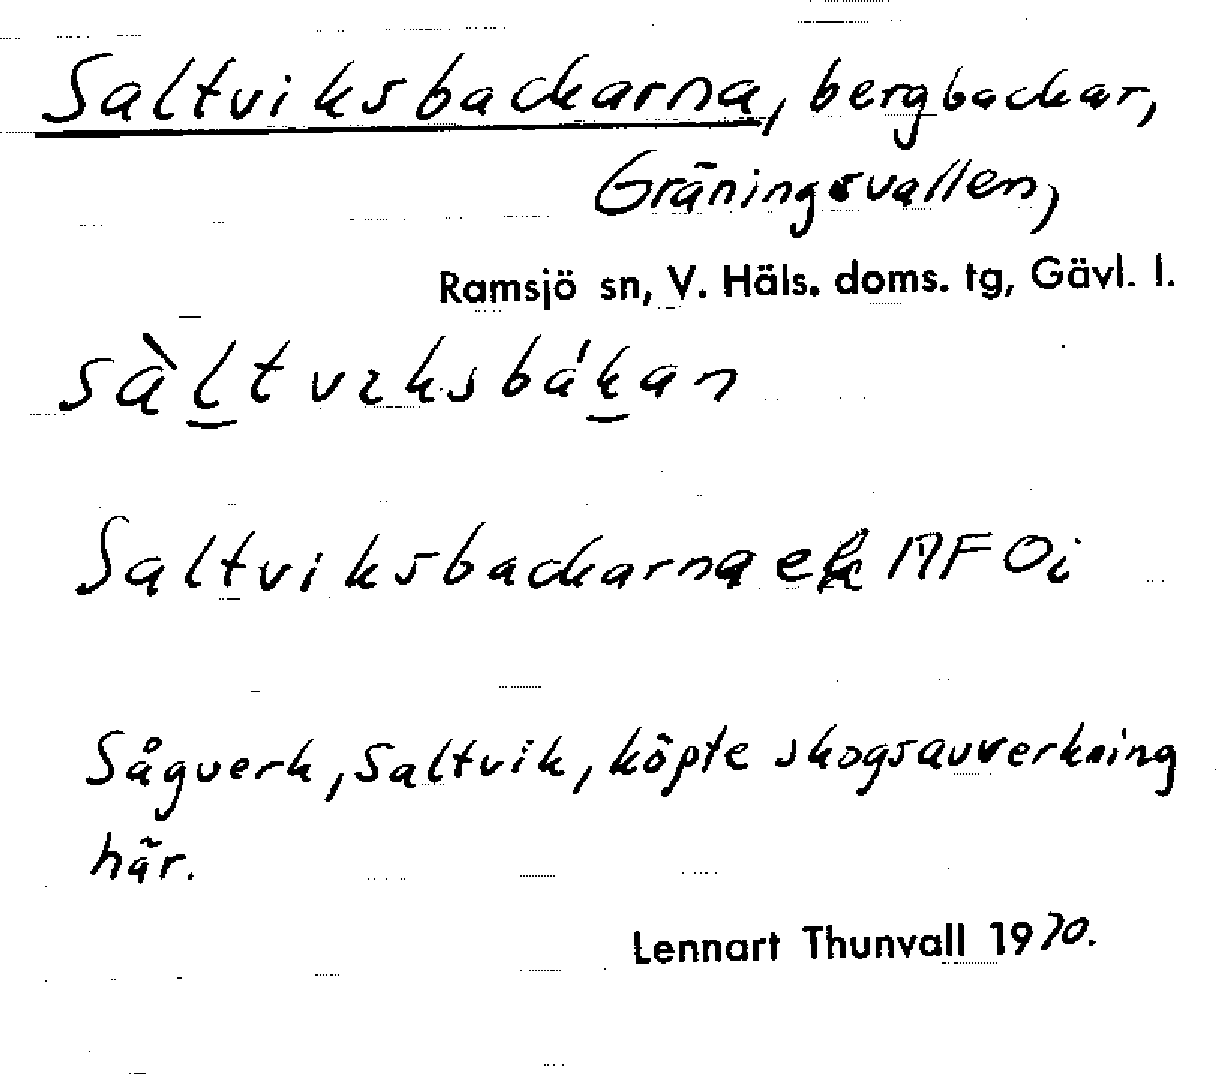 Saltviksbackarna, bergbackar,
Gräningsvallen,
Ramsjö sn, V. Häls. doms. tg, Gävl. l.
sàl̲tvıksbák̲an
Saltviksbackarna ek AFOi
Sågverk, Saltvik, köpte skogsavverkning
här.
Lennart Thunvall 1970.